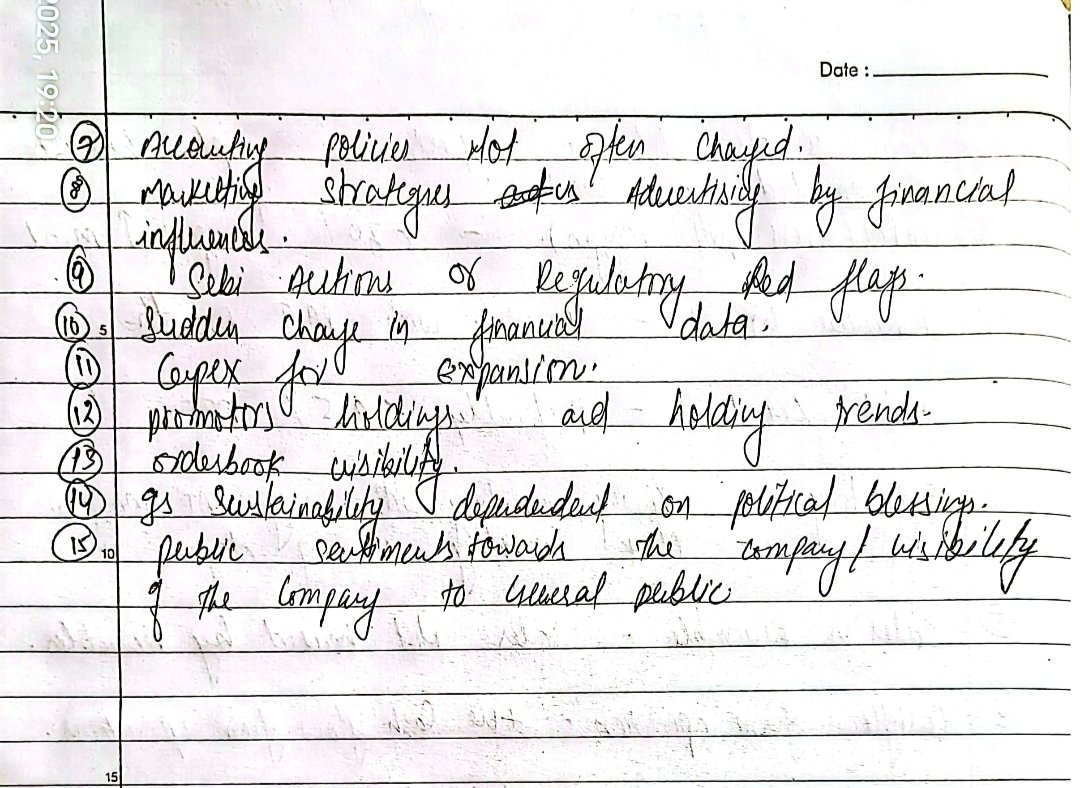 2025, 19:20
Date :
7 Accounting policies Not often changed.
8 Marketing strategies vs Advertising by financial
influencers.
9 Sebi Actions or Regulatory Red flags.
10 5 Sudden change in financial data.
11 Capex for expansion.
12 promotors holdings and holding trends.
13 orderbook visibility.
14 Is Sustainability dependent on political blessings.
15 10 public sentiments towards the company/ visibility
of the Company to General public
15